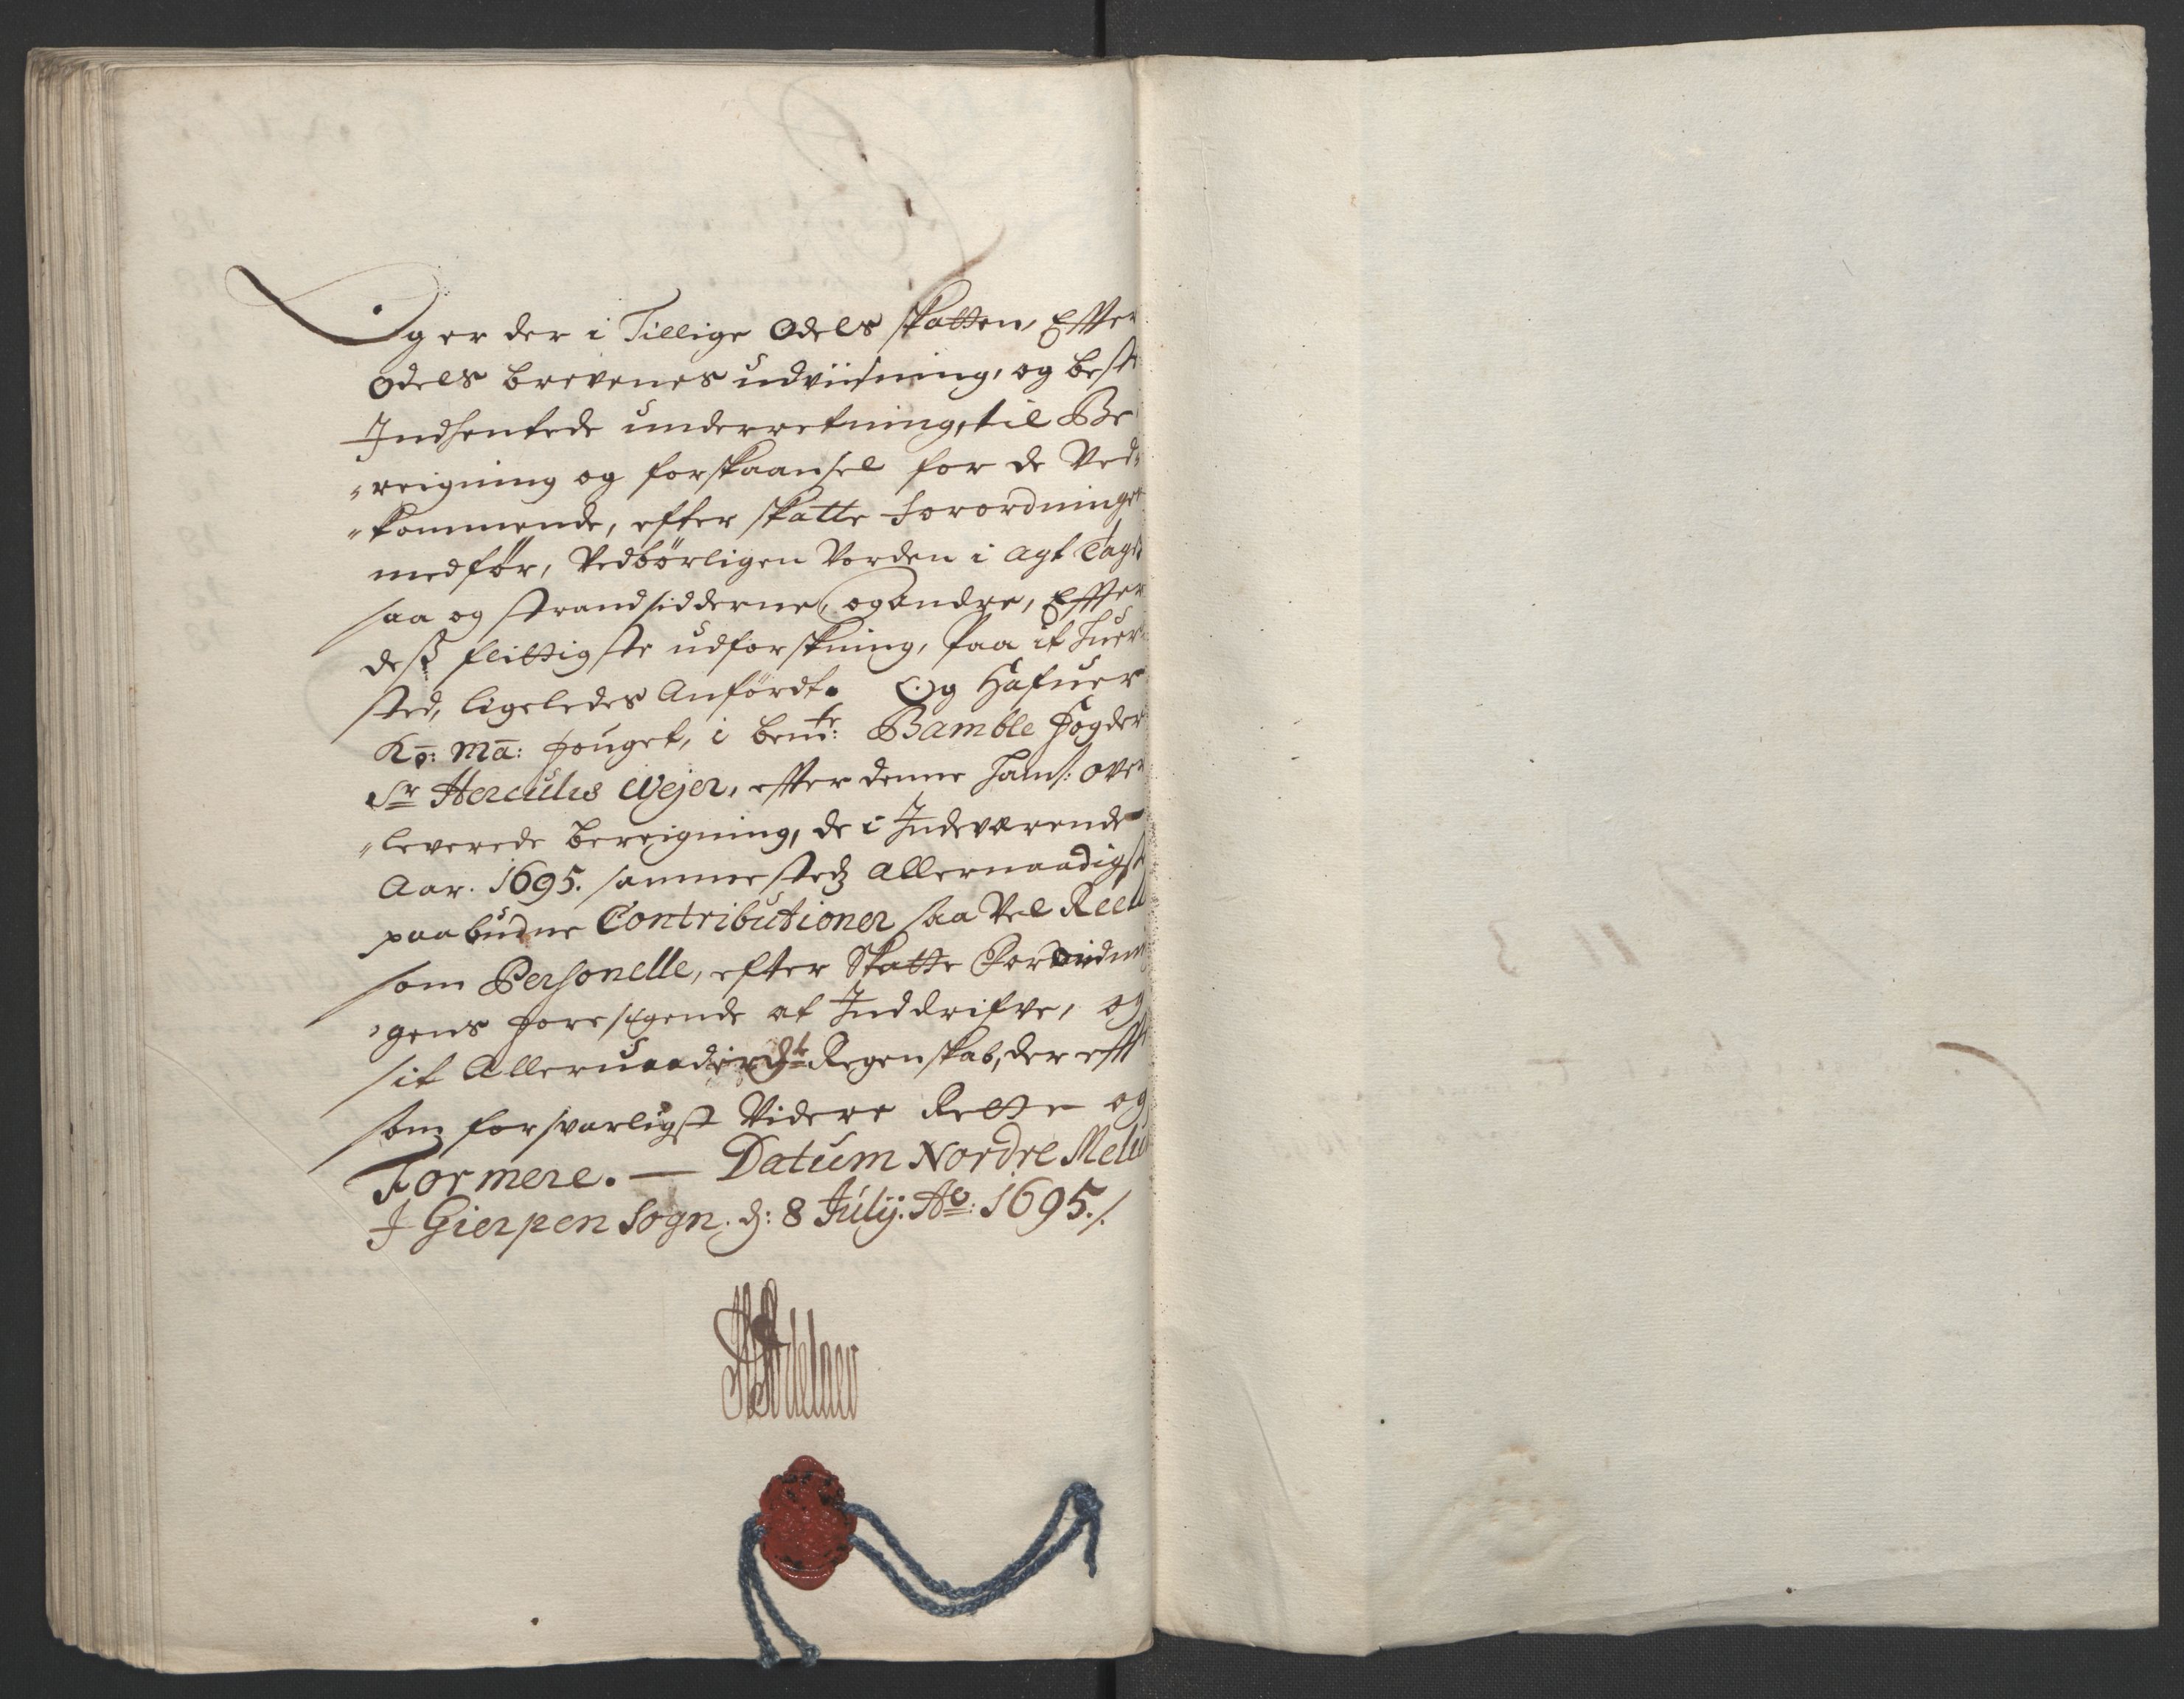 Og er der i Tillige Odels skatten, Effter
Odels brevenes udviisning, og beste
Indhentede underretning, til Be
„reigning og forskaansel for de Ved„
„kommende, efter skatte forordninge
medför, Vedbörligen Vorden i agt Tagt
saa og strandsidderne, og andre, Effter
desz flittigste udforskning, paa it huer
sted, ligeledes Anfördt. Og Hafuer
Ko: Ma: fouget, i bemte: Bamble fogderi
Sr Herculus Wejer, effter denne hams: over
„leverede bereigning, de i Indeværende
Aar. 1695. sammestedz allernaadigst
paabudne Contributioner saa Vel Reelle
som Personelle, efter Skatte Forordnin
„gens foresigende at Inddrifve, og
sit Allerunderdt Regenskab, der effter
som forsvarligst Videre Rette og
Formere. — Datum Nordre Melu
I Gierpen Sogn. d: 8 Julij. Ao: 1695./.